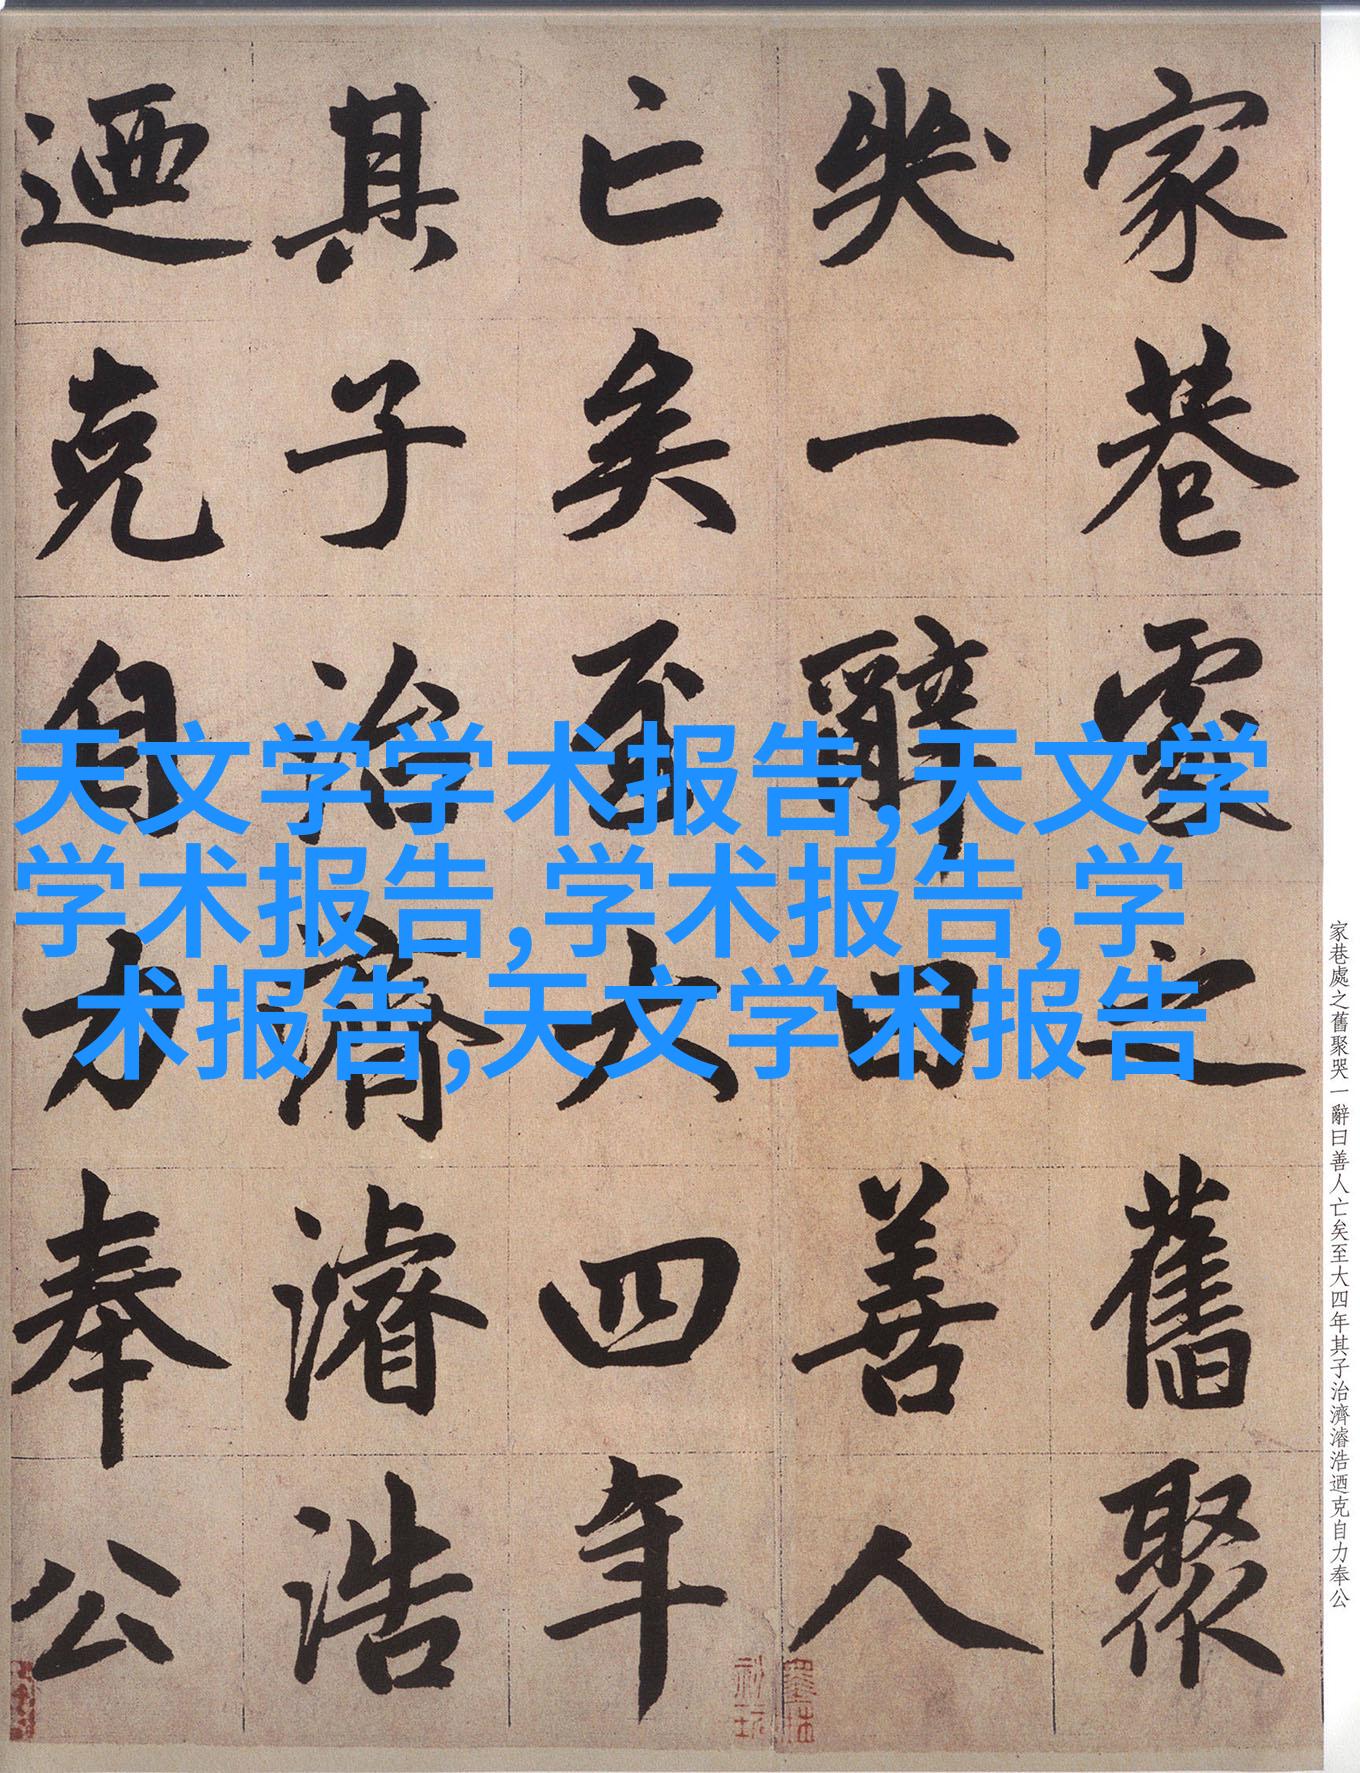 家巷處之舊聚
哭一辭曰善人
亡矣至大四年
其子治濟濬浩
迺克自力奉公
天文学学术报告,天文学
学术报告,学术报告,学
术报告,天文学术报告
家巷處之舊聚哭一辭曰善人亡矣至大四年其子治濟濬浩迺克自力奉公